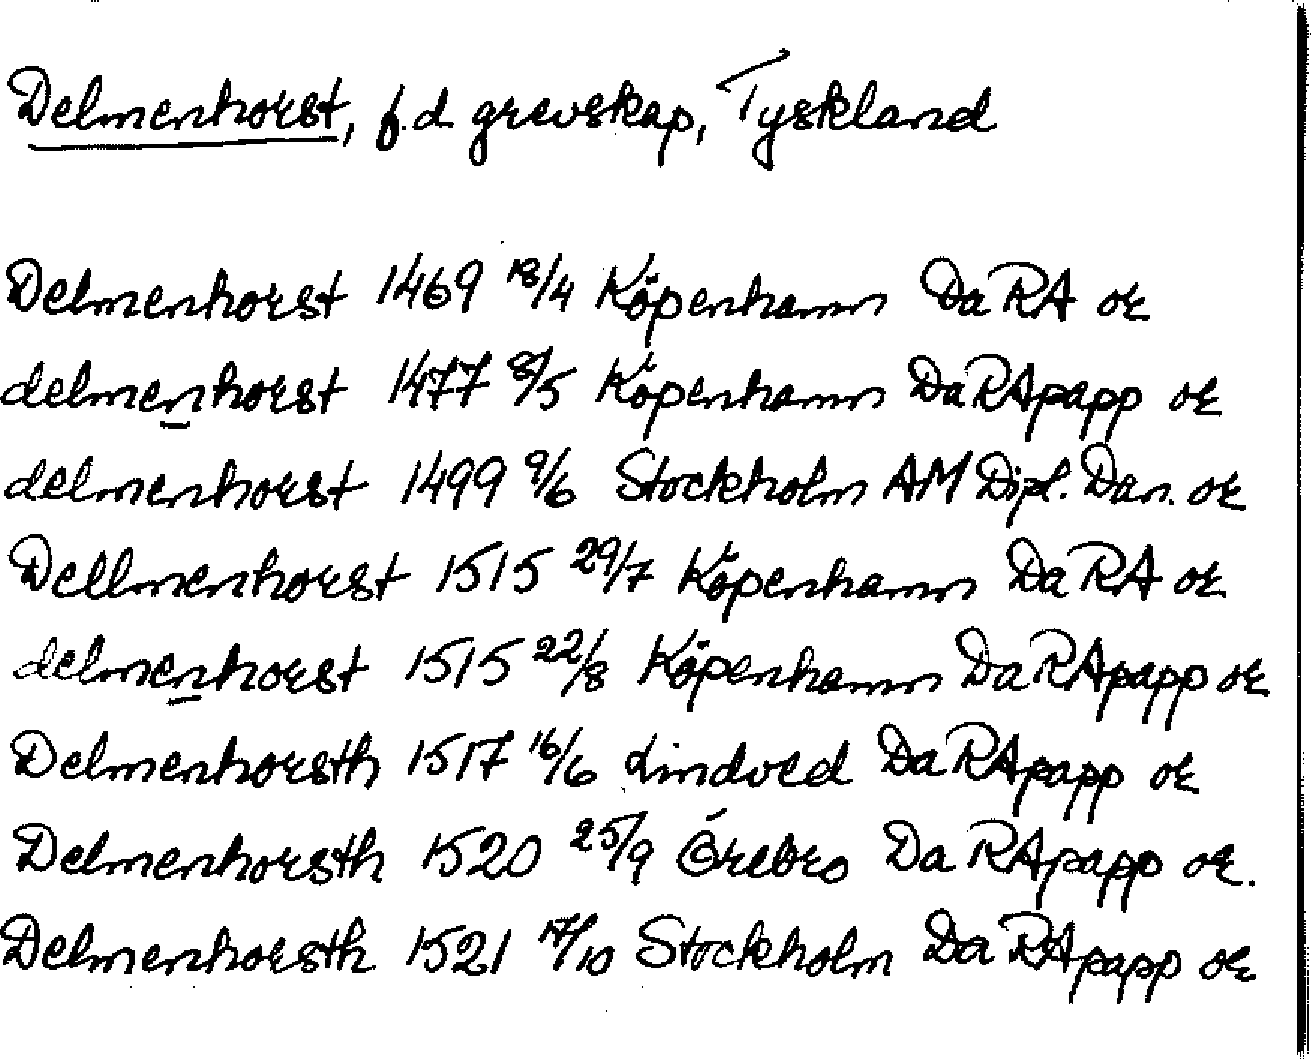 Delmenhorst, f.d grevskap, Tyskland
Delmenhorst 1469 18/4 Köpenhamn DaRA or
delmenhorst 1477 8/5 Köpenhamn DaRApapp or
delmenhorst 1499 9/6 Stockholm AM Dipl. Dan. or
Dellmenhorst 1515 29/7 Köpenhamn DaRA or
delmenhorst 1515 22/8 Köpenhamn DaRApapp or
Delmenhorsth 1517 16/6 Lindved DaRApapp or
Delmenhorsth 1520 25/9 Örebro DaRApapp or.
Delmenhorsth 1521 17/10 Stockholm DaRApapp or